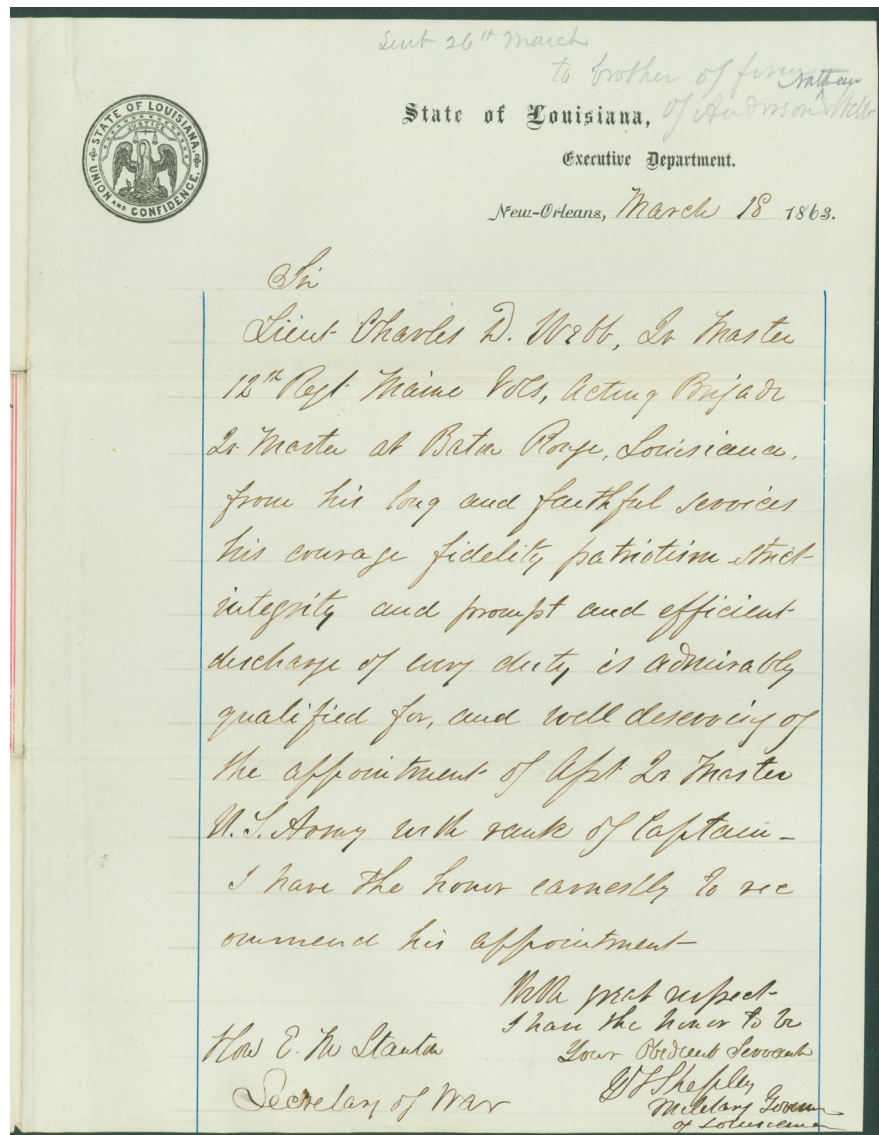 Sent 26th March
to brother of firm Nathan
of Anderson & Webb
STATE OF LOUISIANA.
JUSTICE
UNION AND CONFIDENCE.
State of Louisiana,
Executive Department.
New-Orleans, March 18 1863.
Sir
Lieut Charles D. Webb, Qr Master
12th Regt Maine Vols, Acting Brigade
Qr Master at Baton Rouge, Louisiana,
from his long and faithful services
his courage fidelity patriotism strict
integrity and prompt and efficient
discharge of every duty, is admirably
qualified for, and well deserving of
the appointment of Asst Qr Master
U.S. Army with rank of Captain –
I have the honor earnestly to rec
ommend his appointment –
With great respect
I have the honor to be
Your Obedient Servant
G F Shepley
Military Governor
of Louisiana
Hon E. M Stanton
Secretary of War